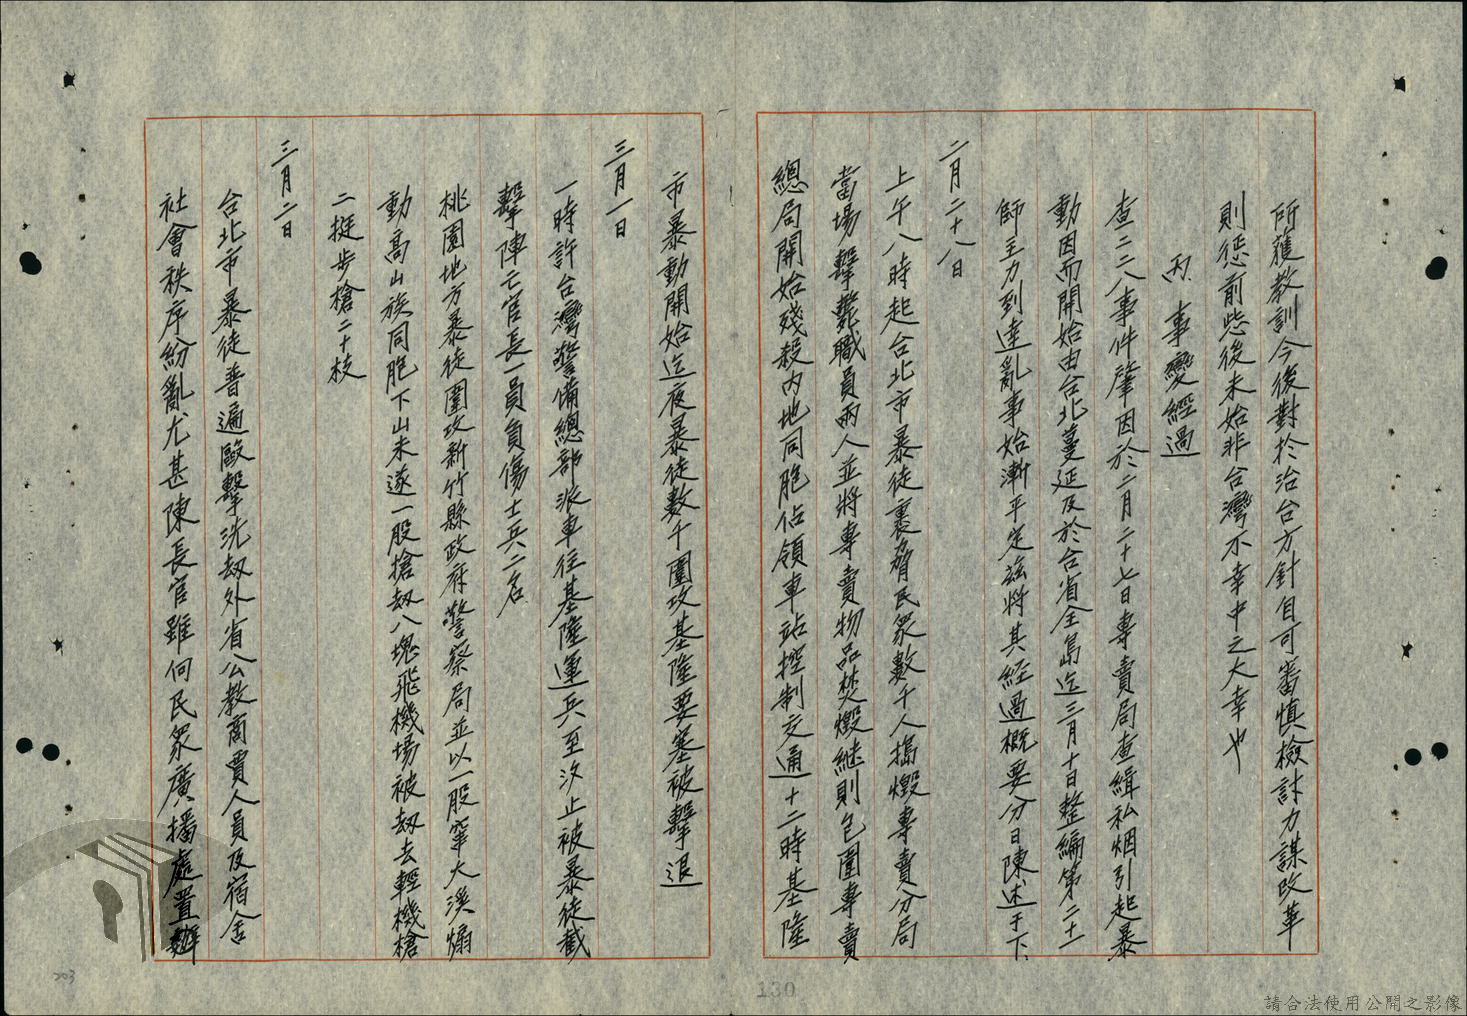 所獲教訓今後對於治台方針自可審慎檢討力謀改革
則惩前毖後未始非台灣不幸中之大幸也
丙、事變經過
查二二八事件肇因於二月二十七日專賣局查緝私烟引起暴
動因而開始由台北蔓延及於台省全島迄三月十日整編第二十一
師主力到達亂事始漸平定茲將其經過概要分日陳述于下
二月二十八日
上午八時起台北市暴徒裹脅民眾數千人搗燬專賣分局
當場擊斃職員兩人並將專賣物品焚燬継則包圍專賣
總局開始殘殺內地同胞佔領車站控制交通十二時基隆
市暴動開始迄夜暴徒數千圍攻基隆要塞被擊退
三月一日
一時許台灣警備總部派車往基隆運兵至汐止被暴徒截
擊陣亡官長一員負傷士兵二名
桃園地方暴徒圍攻新竹縣政府警察局並以一股竄大溪煽
動高山族同胞下山未遂一股搶劫八塊飛機場被劫去輕機槍
二挺步槍二十枝
三月二日
台北市暴徒普遍毆擊洗劫外省公教商賈人員及宿舍
社會秩序紛亂尤甚陳長官雖向民眾廣播處置辦
130
203
請合法使用公開之影像